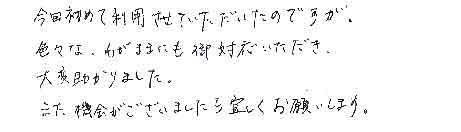 今回初めて利用させていただいたのですが、
色々な、わがままにも御対応いただき、
大変助かりました。
また機会がございましたら宜しくお願いします。